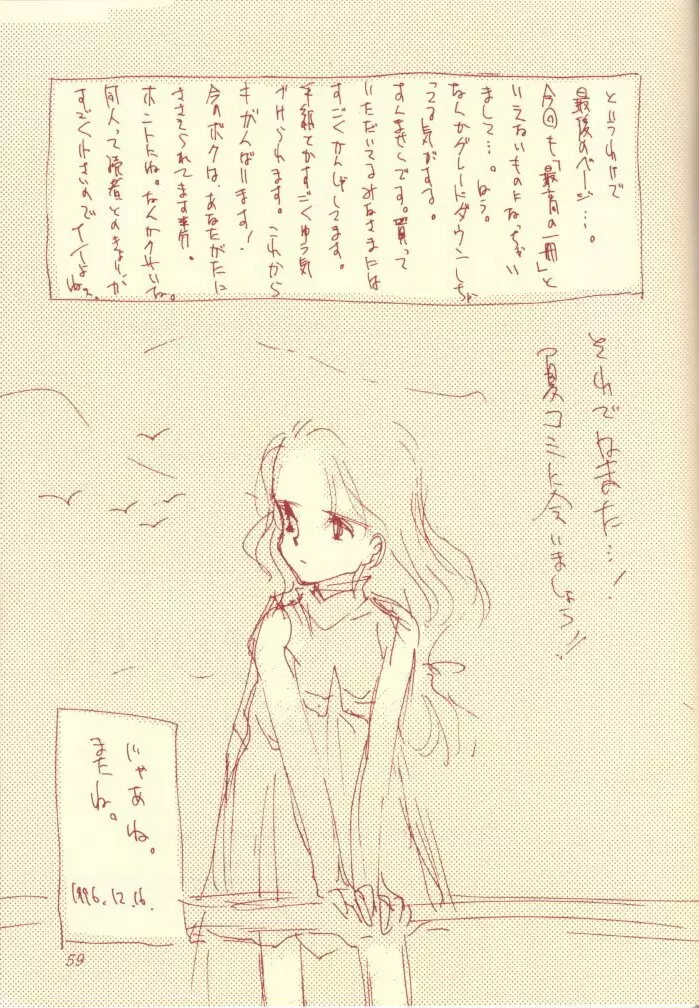 というわけで
最後のページ…。
今回も「最高の一冊」と
いえないものになっちゃい
まして…。はう。
なんかグレードダウンしちゃ
ってる気がする。
すんませんです。買って
いただいてるみなさまには
すごくかんしゃしてます。
手紙とかすごくゆう気
づけられます。これから
もがんばいます!
今のボクは、あなたがたに
ささえられてます
ホントにね。なんかクサいな。
同人って読者とのきょりが
すごく小さいのでイイよねぇ。
それではまた…!
夏コミに会いましょう!!
じゃあね。
またね。
1996.12.16.
59